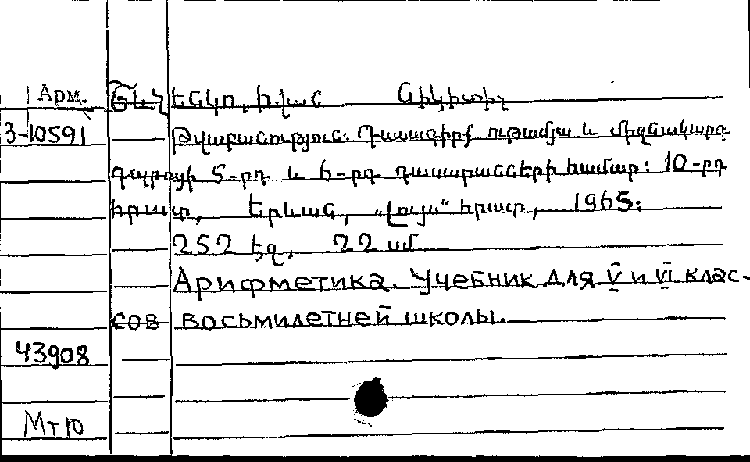 Арм. Շևչենկո, Իվան Նիկիտիչ
3-10591 Թվաբանություն. Դասագիրք ութամյա և միջնակարգ
դպրոցի 5-րդ և 6-րդ դասարանների համար: 10-րդ
հրատ., Երևան, „Լույս“ հրատ., 1965:
252 էջ, 22 սմ
Арифметика. Учебник для V и VI клас-
сов восьмилетней школы.
43908
МтЮ